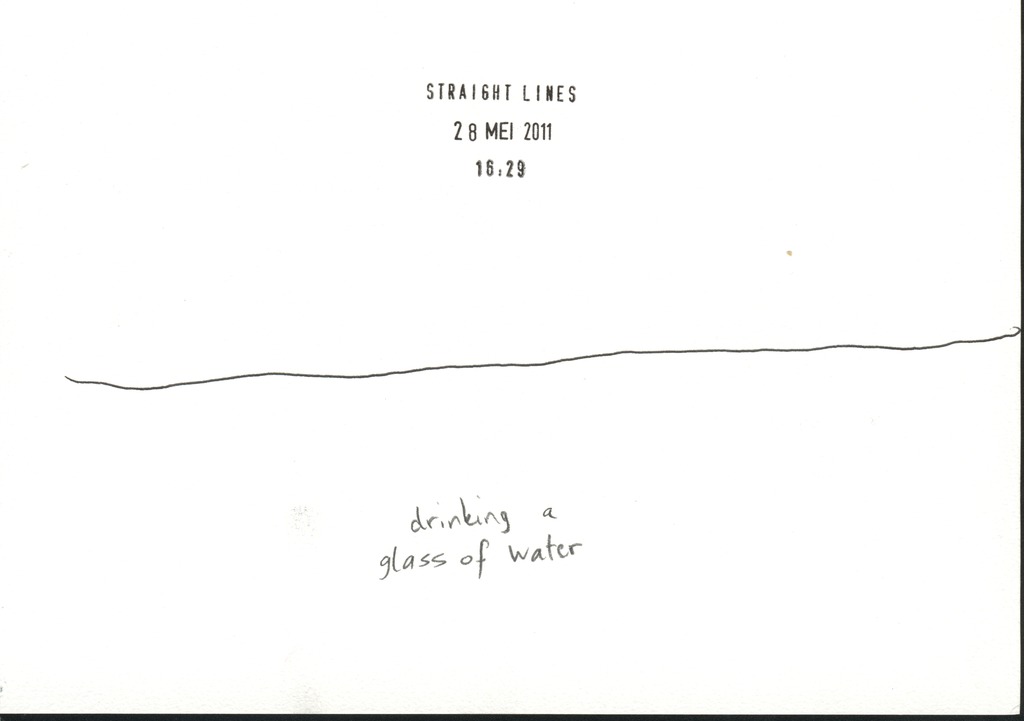 STRAIGHT LINES
28 MEI 2011
16:29
drinking a
glass of water